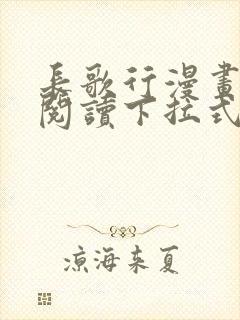 長歌行漫畫
閱讀下拉式
涼海來夏